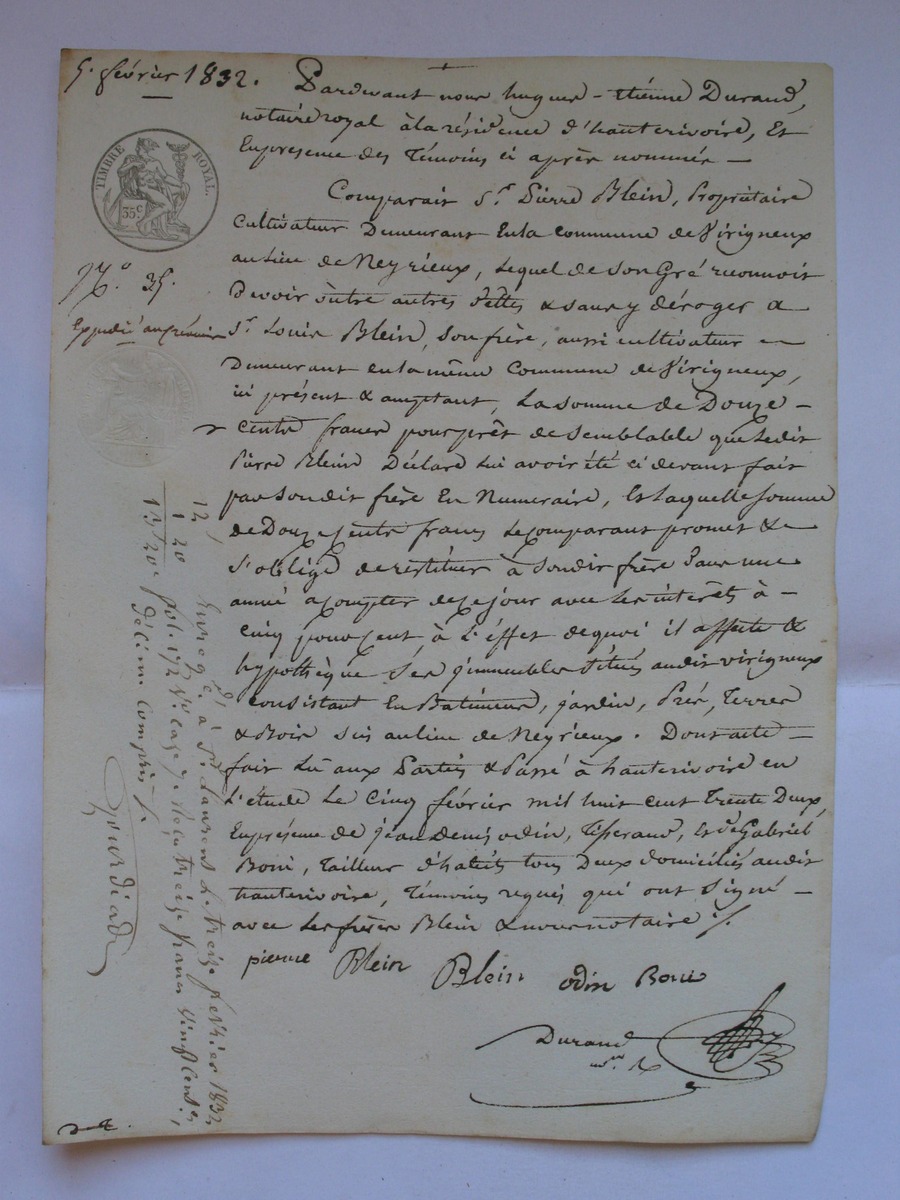 5. février 1832.
Pardevant nous hugues-étienne Durand,
notaire royal à la résidence d'hauterivoire, Et
En présence des Témoins ci après nommés —
TIMBRE ROYAL.
35 c
Comparait Sr. Pierre Blein, Propriétaire
Cultivateur Demeurant En la commune de Virigneux
au Lieu de Neyrieux, Lequel de son Gré reconnoit
Devoir outre autres dettes & sans y déroger a
Nº. 35.
Sr. Louis Blein, son frère, aussi cultivateur
Demeurant en la même Commune de Virigneux,
ici présent & acceptant, La somme de Douze —
Cents francs pour prêt de semblable que Ledit
Pierre Blein Déclare Lui avoir été ci devant fait
par son dit frère En Numéraire, Et Laquelle somme
de Douze cents francs Le comparant promet &
s'oblige de restituer à son dit frère Dans une
année a compter de ce jour avec Les intérêts à -
cinq pour cent, à L'effet de quoi il affecte &
hypothèque ses immeubles situés audit virigneux
consistant En Batiments, jardin, Prés, Terres
& Bois sis au lieu de Neyrieux. Dont acte —
fait Lu aux Parties & Passé à hauterivoire en
L'étude Le Cinq février mil huit cent Trente Deux,
En présence de jean Denis odin, Tisserand, Et de Gabriel
Boni, Tailleur d'habits tous Deux domiciliés audit
hauterivoire, Témoins requis qui ont signé —
avec Les frères Blein & nous notaire
pierre Blein
Blein
odin
Boni
Durand
nre. R.
12,
1 20
13,20c
Enregé. à St. Laurent Le treize février 1832
fol. 172 Vo. Case 7. Reçu treize francs vingt cent.es,
Décime compris